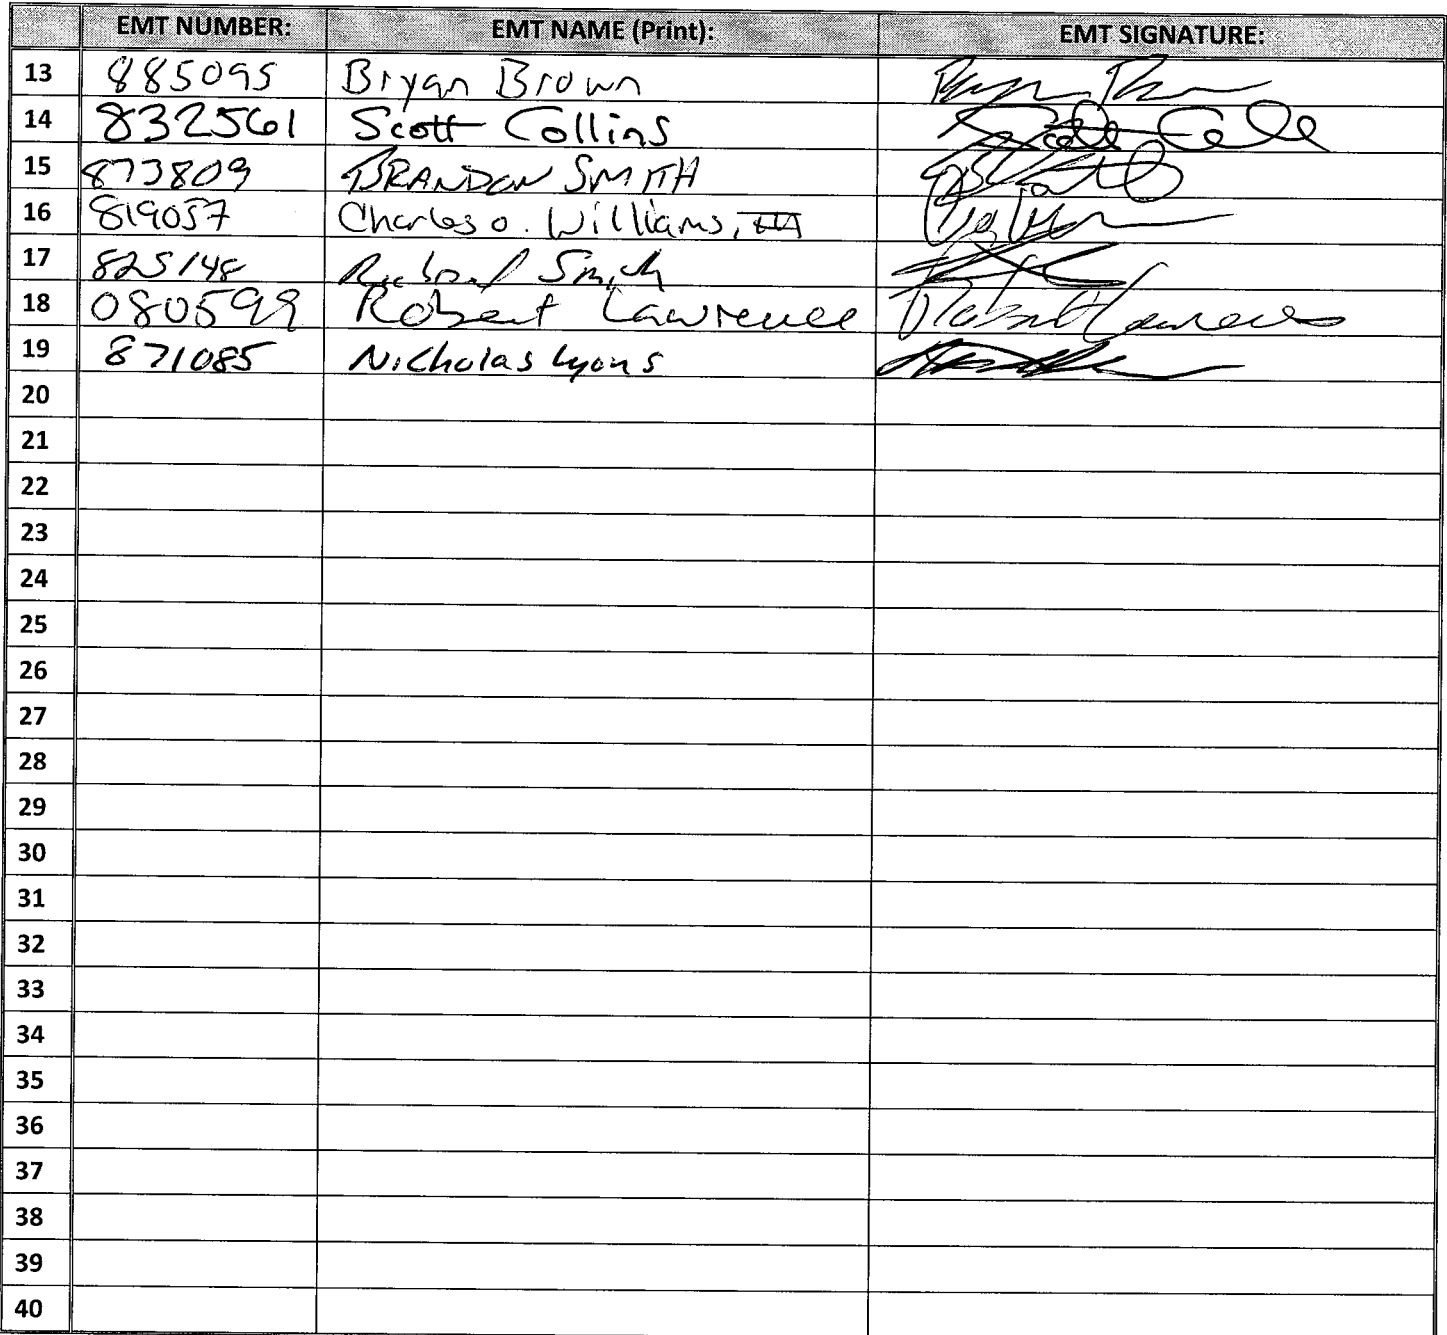 EMT NUMBER: EMT NAME (Print): EMT SIGNATURE:
13 885095 Bryan Brown
14 832561 Scott Collins
15 873809 BRANDON SMITH
16 819057 Charles O. Williams, III
17 825148 Richard Smith
18 080599 Robert Lawrence Robert Lawrence
19 871085 Nicholas Lyons
20
21
22
23
24
25
26
27
28
29
30
31
32
33
34
35
36
37
38
39
40